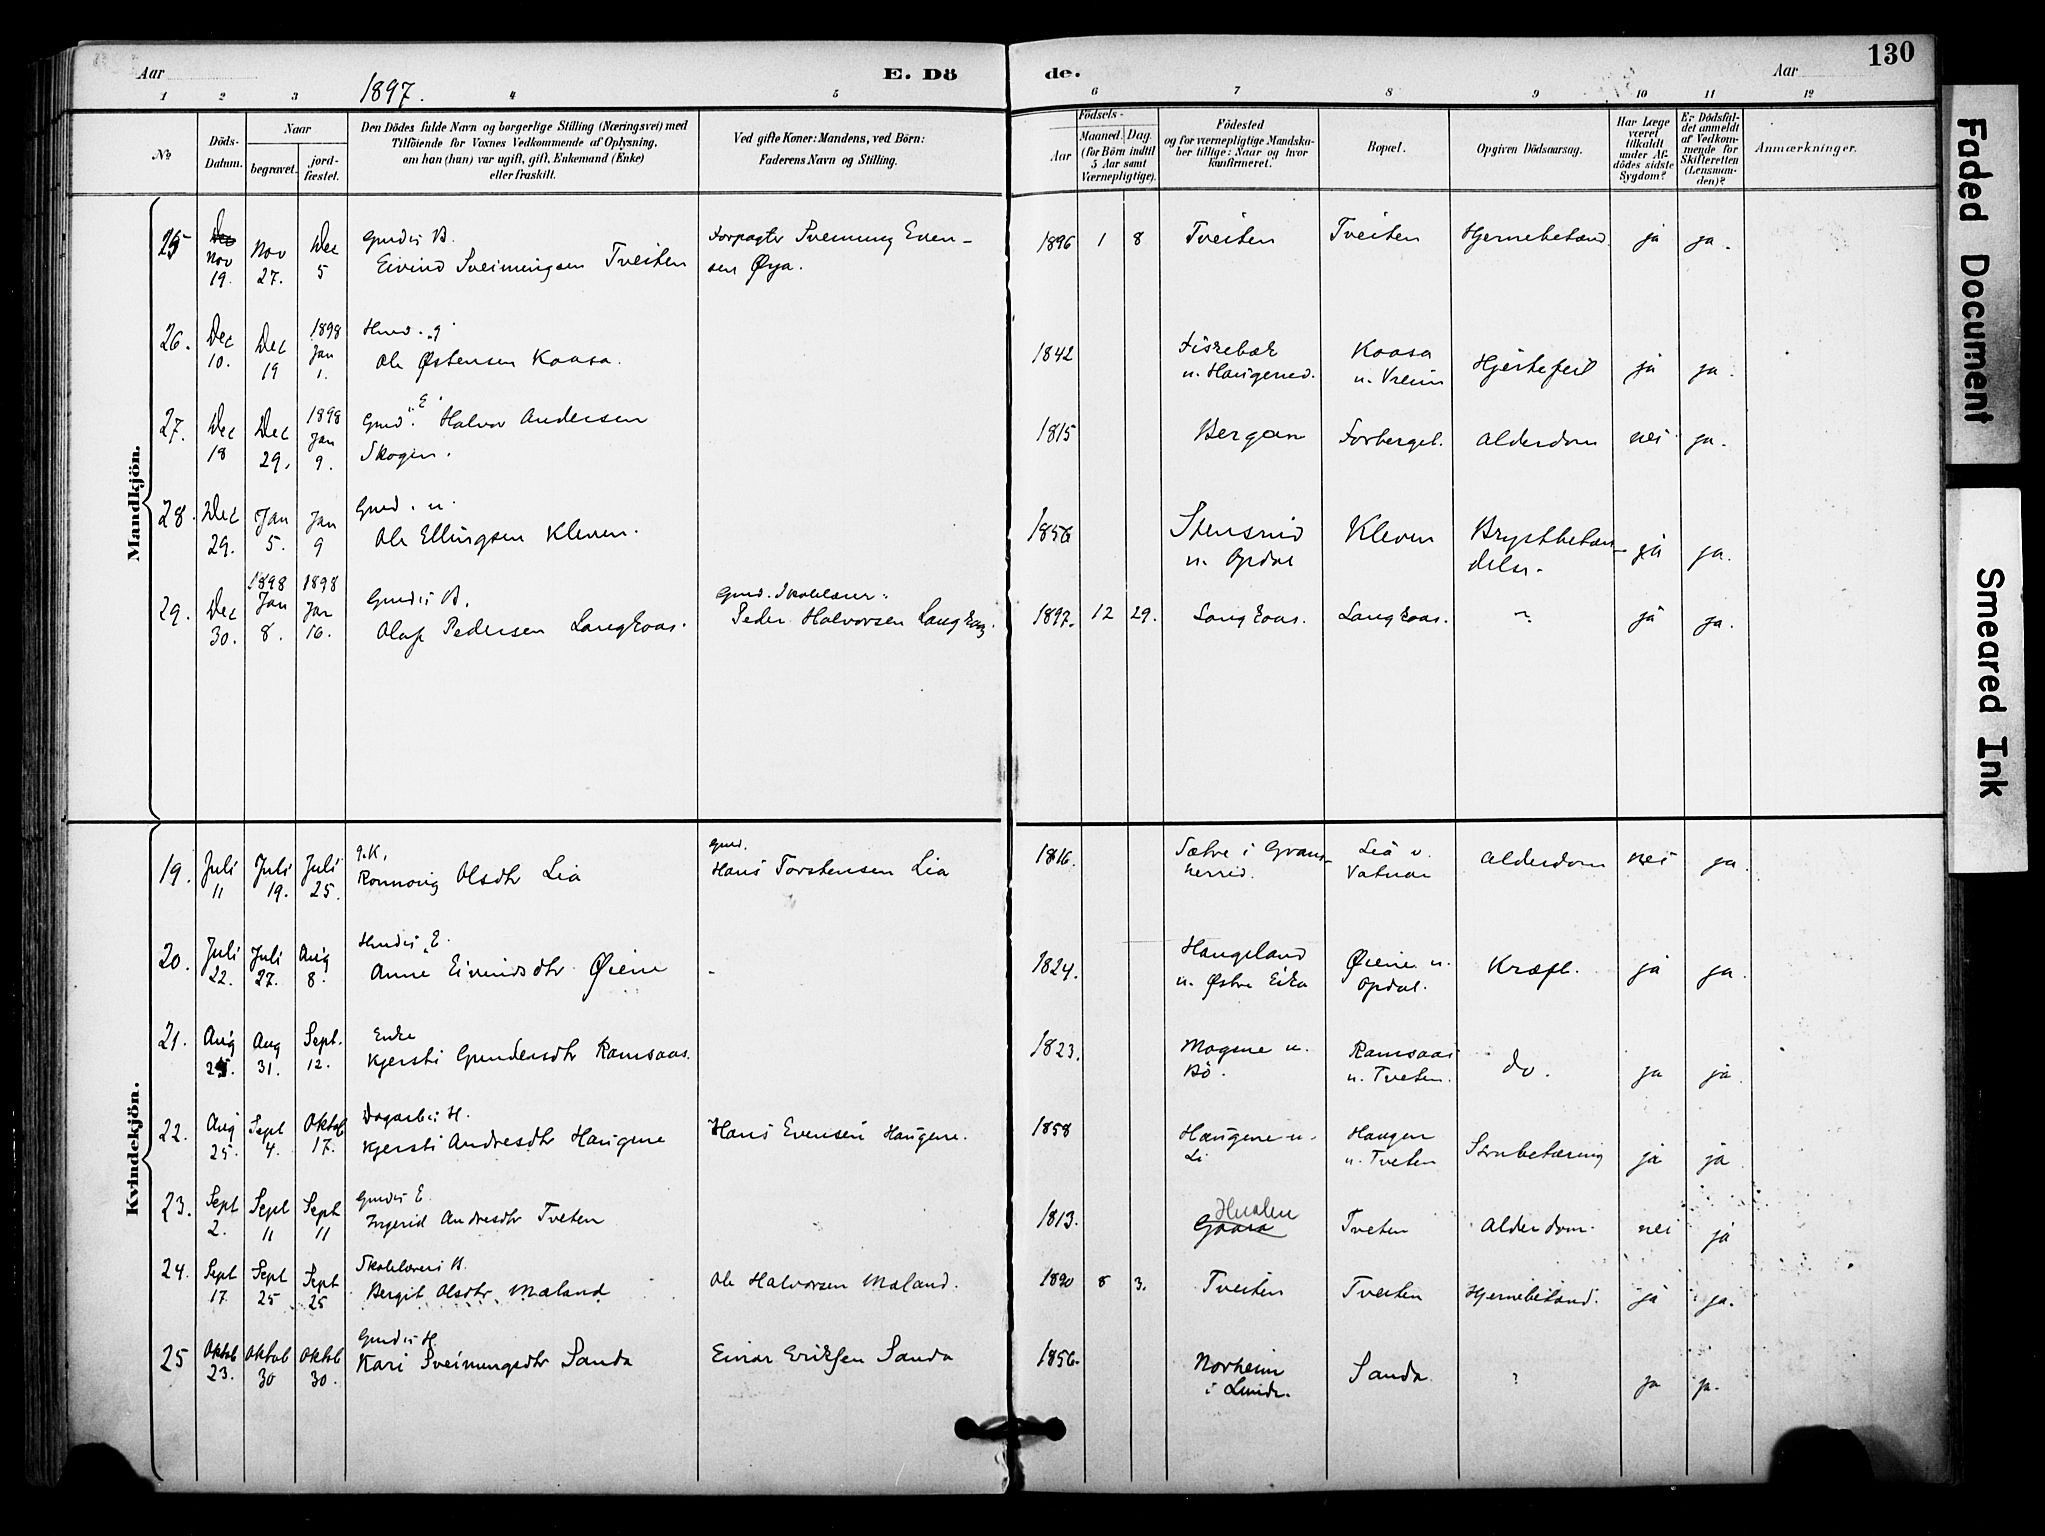 130
Aar
1897.
E. Dö
de.
Aar
1 2 3 4 5 6 7 8 9 10 11 12
No
Döds-
Datum.
Naar
begravet.
jord-
fæstet.
Den Dödes fulde Navn og borgerlige Stilling (Næringsvei) med
Tilföiende for Voxnes Vedkommende af Oplysning,
om han (hun) var ugift, gift, Enkemand (Enke)
eller fraskilt.
Ved gifte Koner: Mandens, ved Börn:
Faderens Navn og Stilling.
Födsels-
Aar
Maaned. Dag.
(for Börn indtil
5 Aar samt
Værnepligtige).
Födested
og for værnepligtige Mandsku-
ber tillige: Naar og hvor
konfirmeret.
Bopæl.
Opgiven Dödsaarsag.
Har Læge
været
tilkaldt
under Af-
dödes sidste
Sygdom?
Er Dödsfal-
det anmeldt
af Vedkom-
mende for
Skifteretten
(Lensman-
den)?
Anmærkninger.
Mandkjön.
25 Nov 19. Nov 27. Dec 5 Gmds B. Eivind Sveinungsen Tveiten Forpagter Sveinung Even-
sen Øya. 1896 1 8 Tveiten Tveiten Hjernebetænd. ja ja.
26. Dec 10. Dec 19 1898 Jan 1. Hmd. g Ole Østensen Kaasa. 1842 Fiskebæk
u. Haugened. Kaasa
u. Vreim Hjertefeil ja ja.
27. Dec 18 Dec 29. 1898 Jan 9. Gmd. E. Halvor Andersen
Skogen. 1815 Bergan Forberget. Alderdom nei ja.
28. Dec 29. Jan 5. Jan 9 Gmd. u. Ole Ellingsen Kleven. 1856 Stensrud
u. Opdal Kleven Brystbetæn-
delse. ja ja.
29. Dec 30. 1898 Jan 8. 1898 Jan 16. Gmds B. Olaf Pedersen Langkaas. Gmd. Skolelærer.
Peder Halvorsen Langkaas. 1897. 12 29. Langkaas. Langkaas. ? ja ja.
Kvindekjön.
19. Juli 11 Juli 19. Juli 25. g.K. Ronnovig Olsdtr Lia Gmd.
Hans Torstensen Lia 1816. Sætre i Grans-
herred. Lia u.
Vatnar Alderdom nei ja.
20. Juli 22. Juli 27. Aug 8. Hmds E. Anne Eivindsdtr Øiene - 1824. Haugeland
u. Østre Eika Øiene u.
Opdal. Kræft. ja ja.
21. Aug 25. Aug 31. Sept. 12. Enke Kjersti Gundersdtr Ramsaas. 1823. Mogene u.
Bö. Ramsaas
u. Tveten. do. ja ja.
22. Aug 25. Sept 4. Oktob 17. Dagarbei H. Kjersti Andresdtr Haugene Hans Evensen Haugene. 1858 Haugene u.
Li Haugen
u. Tveten ja ja.
23. Sept 2. Sept 11 Sept 11 Gmds E. Ingerid Andresdtr Tveten 1813. Gaara Tveten Alderdom. nei ja
24. Sept 17. Sept 25 Sept 25 Skolelærers B. Bergit Olsdtr Mæland Ole Halvorsen Mæland. 1890 8 3. Tveiten Tveiten Hjernebetænd. ja ja.
25 Oktob 23. Oktob 30 Oktob 30. Gmds H. Kari Sveinungsdtr Sanda Einar Eriksen Sanda 1856. Norheim
i Lunde. Sanda ? ja ja.
Faded Document
Smeared Ink